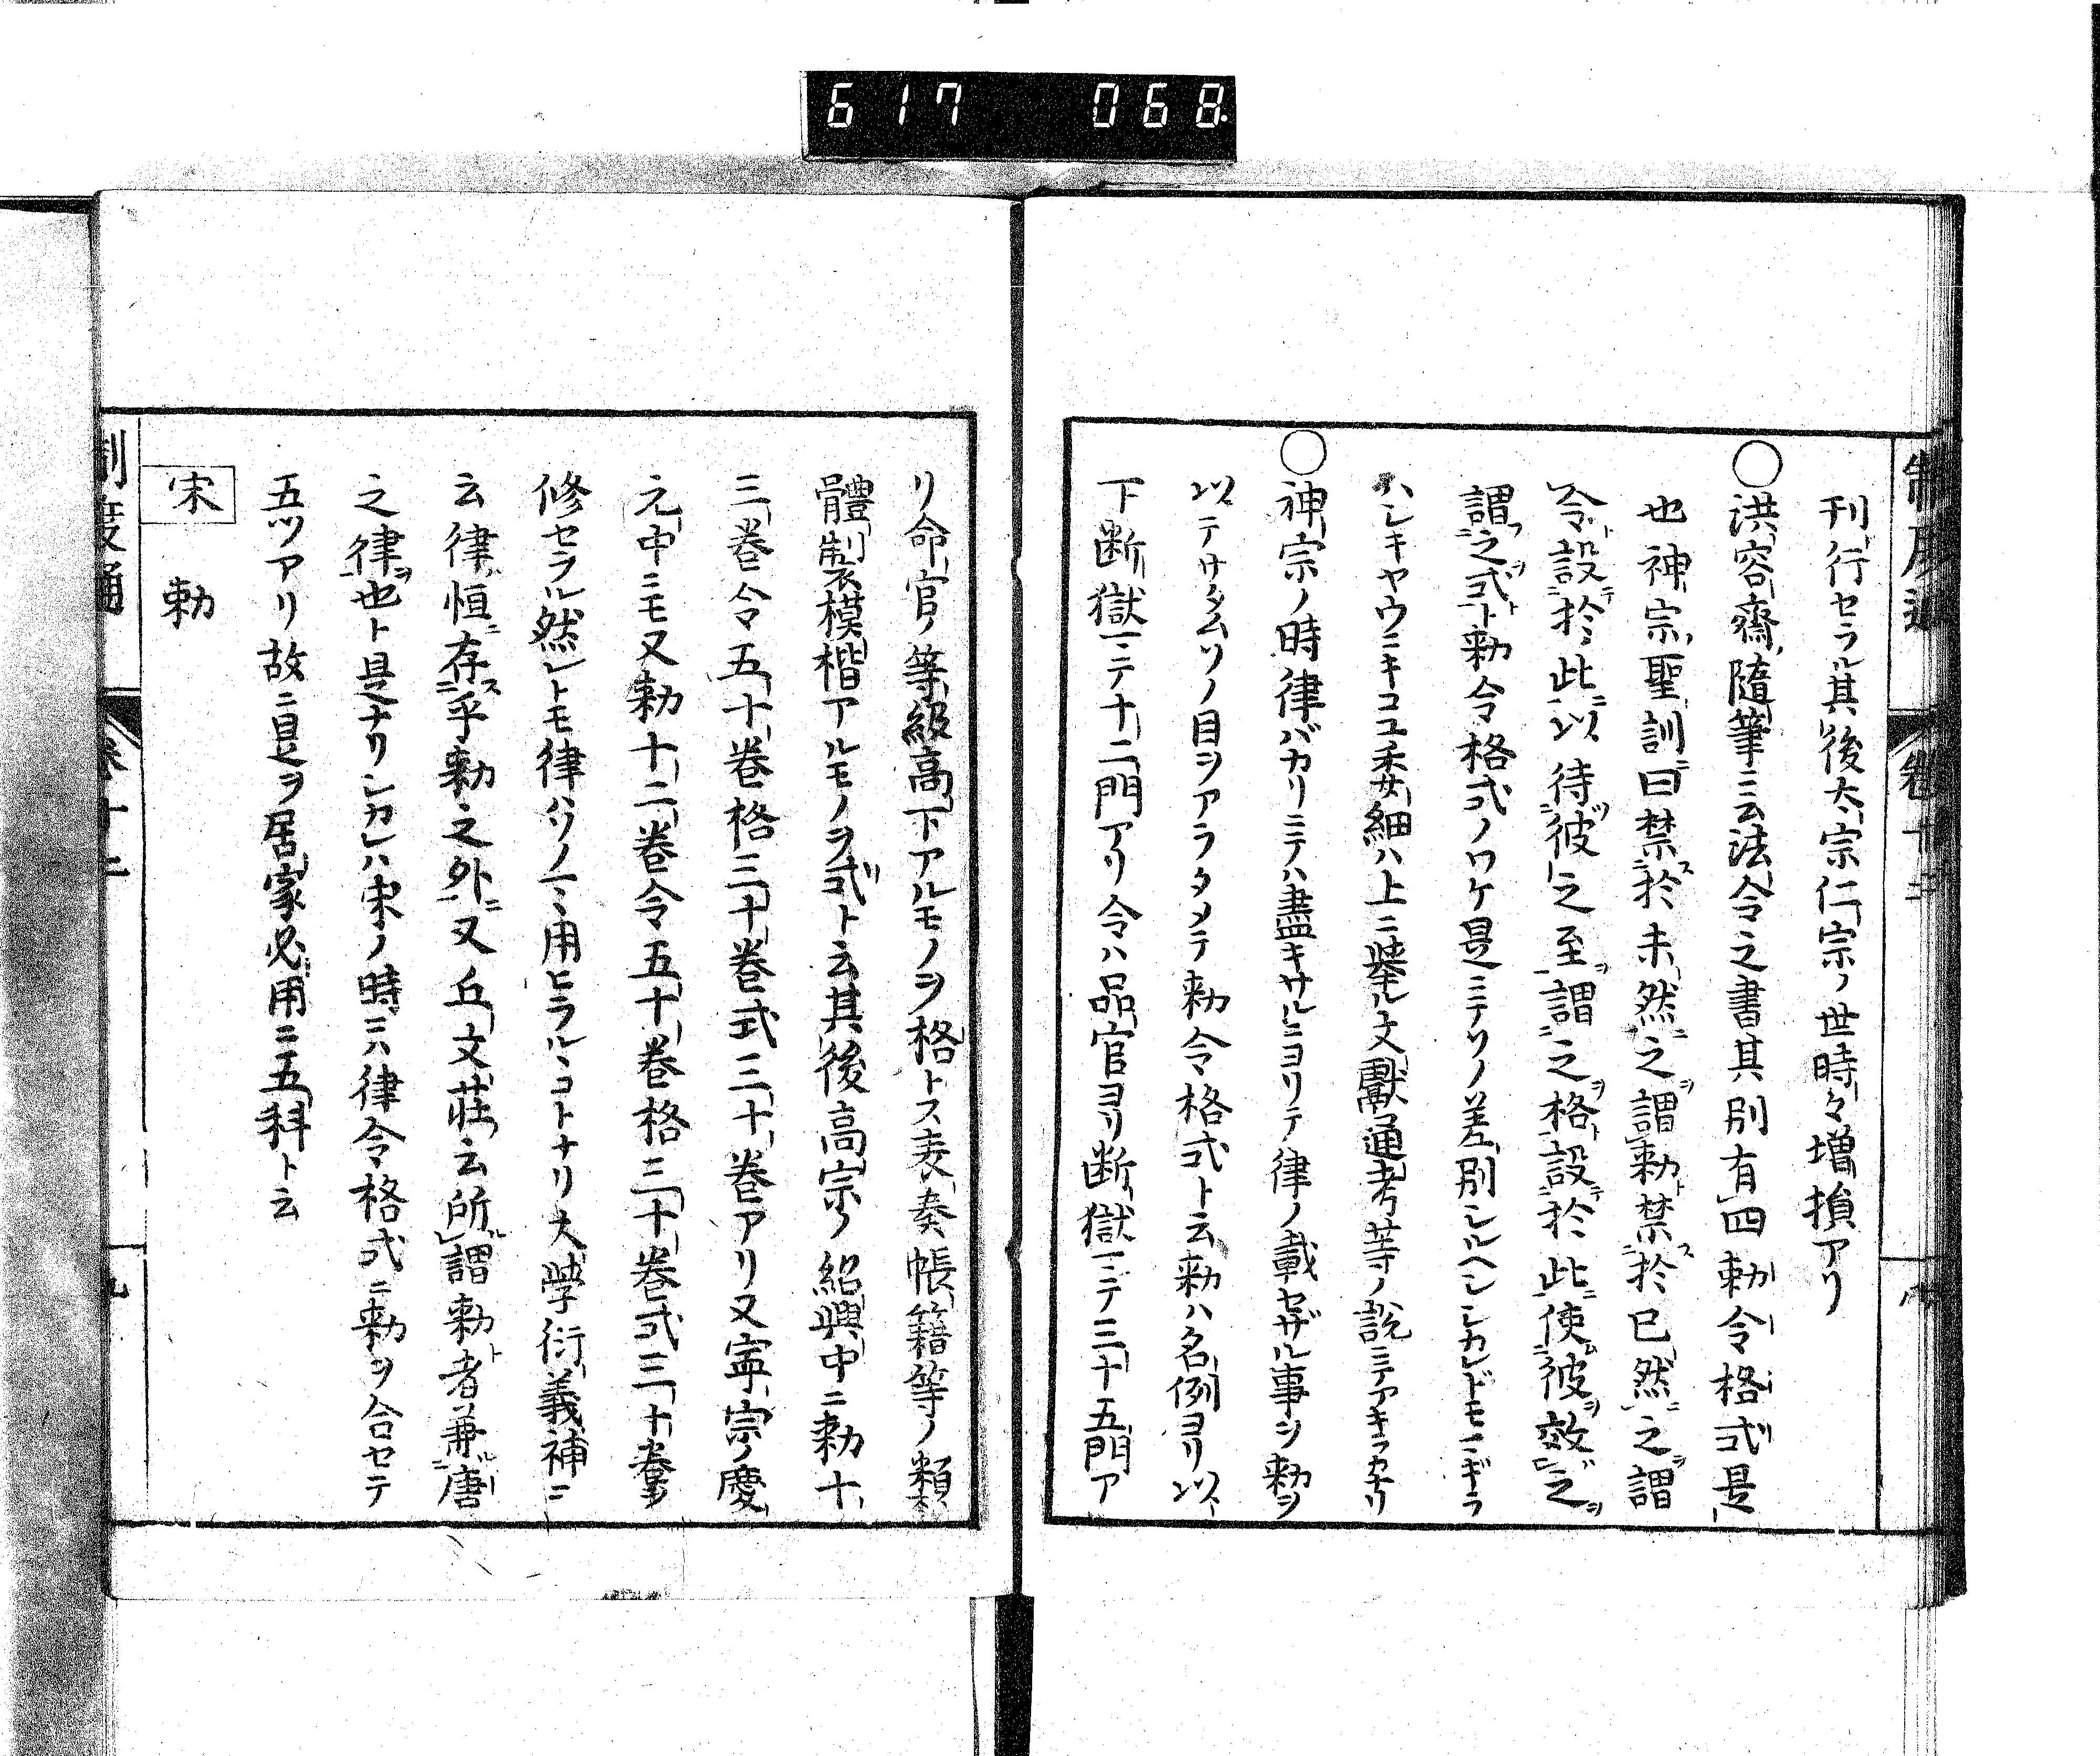 617 068
制度通 卷十二 八
刊行セラル其後太宗仁宗ノ世時々増損アリ
○洪容齋隨筆ニ云法令之書其別有四勅令格式是
也神宗聖訓曰禁於未然之謂勅禁於已然之謂
令設於此以待彼之至謂之格設於此使彼效之
謂之式ト勅令格式ノワケ是ニテソノ差別シルヘシシカレドモコギラ
ハシキヤウニキコユ委細ハ上ニ擧ル文獻通考等ノ説ニテアキラカナリ
○神宗ノ時律バカリニテハ盡キサルニヨリテ律ノ載セザル事ヲ勅ヲ
以テサダムソノ目ヲアラタメテ勅令格式ト云勅ハ名例ヨリ以
下断獄ニテ十二門アリ令ハ品官ヨリ断獄ニテ三十五門ア
リ命官ノ等級高下アルモノヲ格トス表奏帳籍等ノ類
體製模楷アルモノヲ式ト云其後高宗ノ紹興中ニ勅十
三巻令五十巻格三十巻式三十巻アリ又寧宗ノ慶
元中ニモ又勅十二巻令五十巻格三十巻式三十巻ヲ
修セラル然レトモ律ハソノマヽ用ヒラルヽコトナリ大学衍義補ニ
云律恒存乎勅之外又丘文莊云所謂勅者兼唐
之律也ト是ナリシカレハ宋ノ時ニハ律令格式ニ勅ヲ合セテ
五ツアリ故ニ是ヲ居家必用ニ五科ト云
宋 勅
制度通 卷十二 九